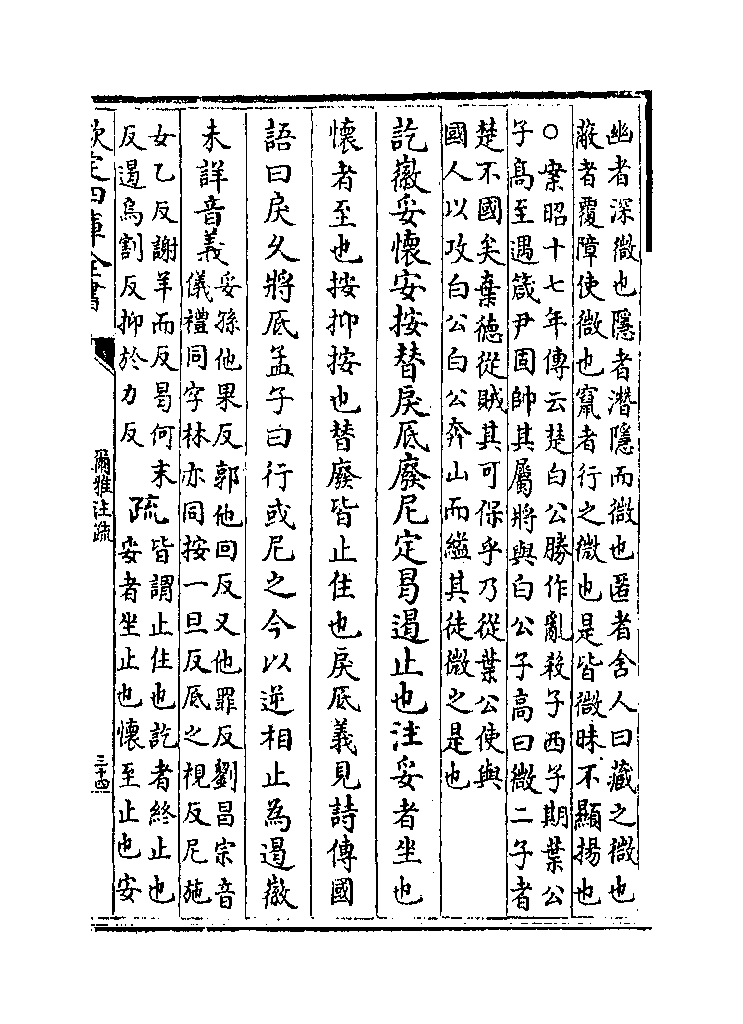 幽者深微也隱者潛隱而微也匿者舍人曰藏之微也
蔽者覆障使微也竄者行之微也是皆微昧不顯揚也
○案昭十七年傳云楚白公勝作亂殺子西子期葉公
子高至遇箴尹固帥其屬將與白公子高曰微二子者
楚不國矣棄德從賊其可保乎乃從葉公使與
國人以攻白公白公奔山而縊其徒微之是也
訖徽妥懷安按替戾厎廢尼定曷遏止也注妥者坐也
懷者至也按抑按也替廢皆止住也戾厎義見詩傳國
語曰戾久將厎孟子曰行或尼之今以逆相止為遏徽
未詳音義
妥孫他果反郭他回反又他罪反劉昌宗音
儀禮同字林亦同按一旦反厎之視反尼施
女乙反謝羊而反曷何末
反遏烏割反抑於力反
疏
皆謂止住也訖者終止也
妥者坐止也懷至止也安
欽定四庫全書
爾雅注疏
三十四